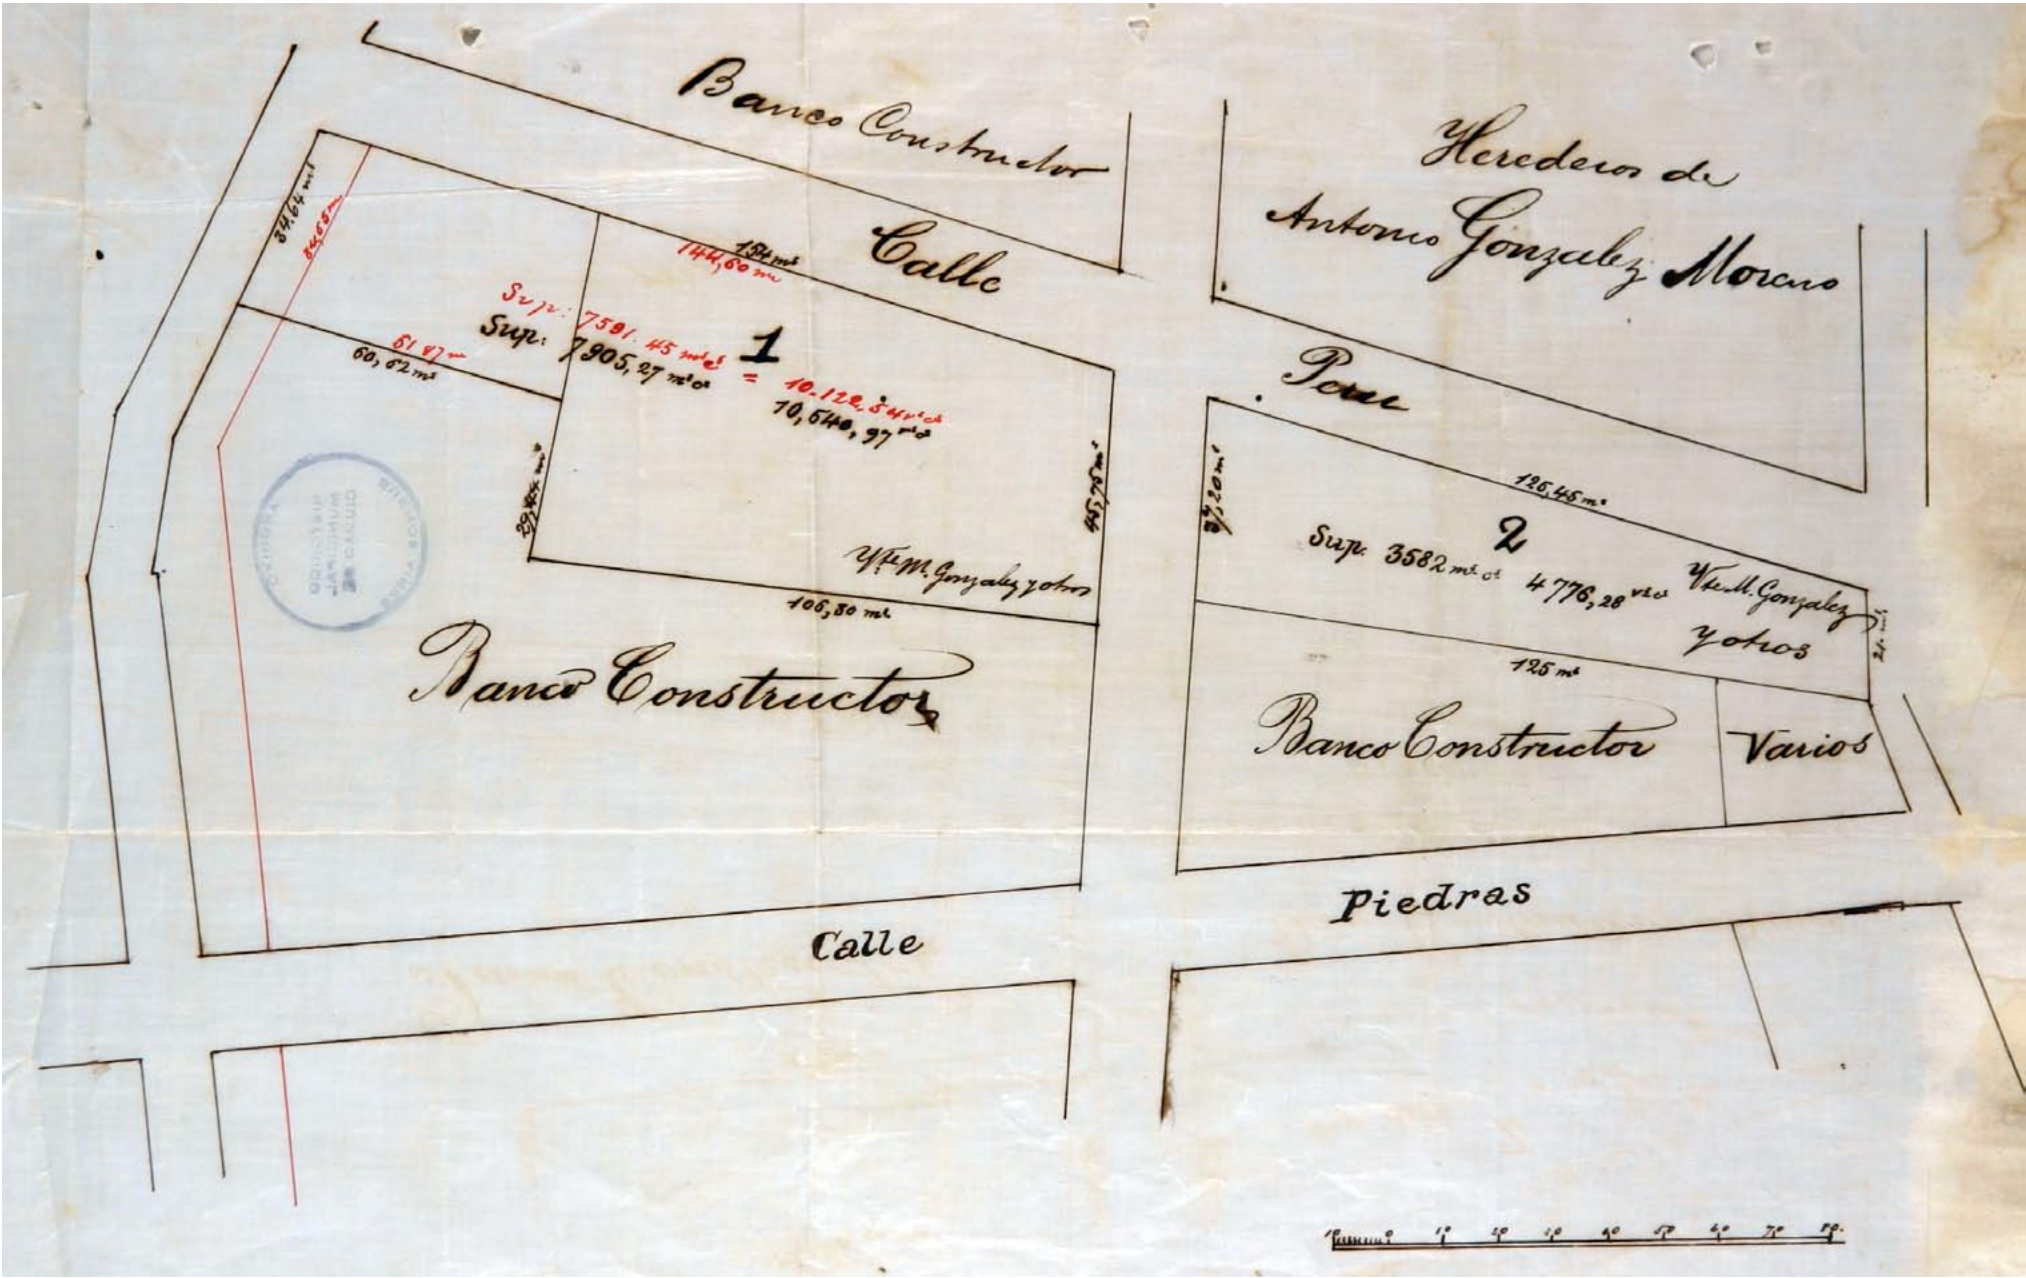 Banco Constructor
Herederos de
Antonio Gonzalez Moreno
Calle
Peru
34.64 mˢ
34,65 m
154 mˢ
144,60 m
Sup: 7591.45 m²c² = 10.122,54 v²c²
Sup: 7905,27 m²c² 10,540,97
1
51 87 m
60,62 mˢ
45,75 mˢ
Vte M. Gonzalez y otros
106,80 mˢ
Banco Constructor
126,45 mˢ
2
Sup. 3582 m² c² 4776,28
Vte M. Gonzalez
y otros
125 mˢ
Banco Constructor
Varios
Calle
Piedras
10 0 10 20 30 40 50 60 70 80.